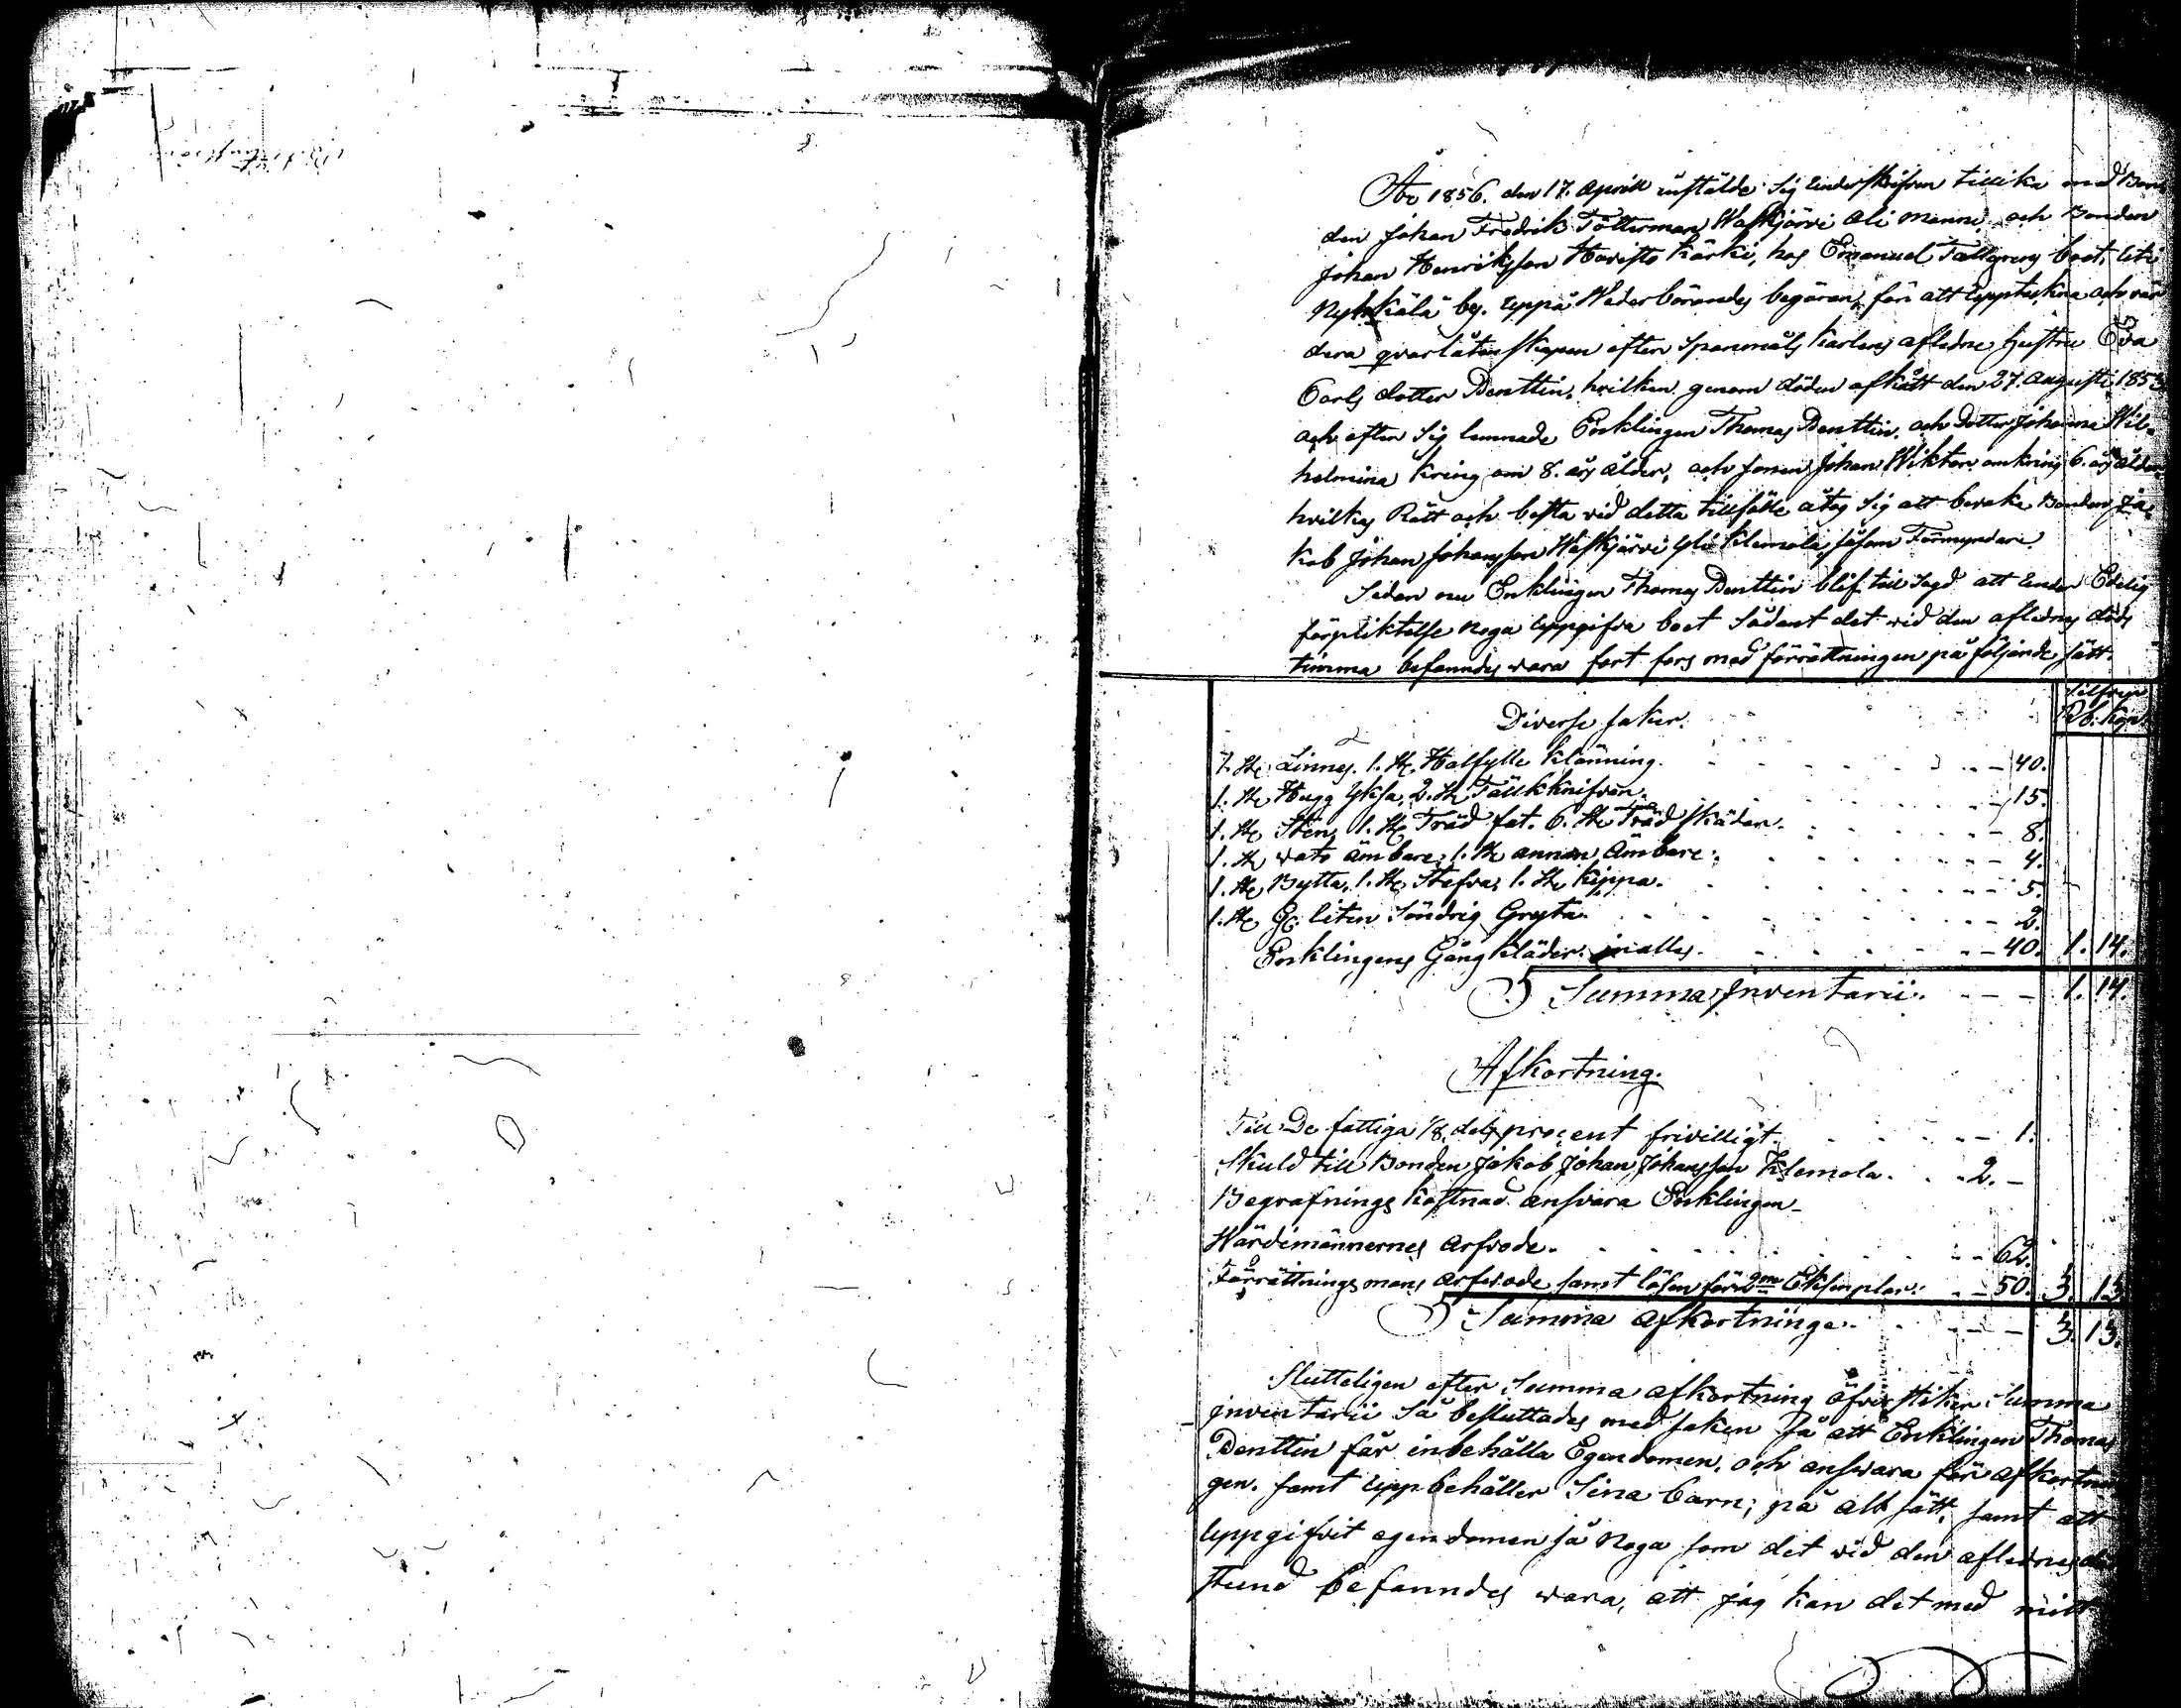 År 1856. den 17. Aprill instälde sig Underskrifven tillika med Bon
den Johan Fredrik Tötterman Waskjärvi Ali Manni och Bonden
Johan Henriksson Havisto Kärki, hos Emanuel Tallgrens boet, uti
Nyhkälä by. uppå Wederbörandes begäran, för att Uppteckna och vär
dera qvarlåtenskapen efter Spanmåls Karlens aflidne Hustru Eva
Carls dotter Denttin, hvilken genom döden afgått den 27. Augusti 1853
och efter sig lemnade Enklingen Thomas Denttin. och Dotter Johanna Wil-
helmina Kring om 8. års ålder, och sonen Johan Wiktor omkring 6. års ålder
hvilkas Rätt och bästa vid detta tillfälle åtog sig att bevaka Bonden Ja-
kob Johan Johansson Waskjärvi Yli Klemola, såsom Förmyndare.
Sedan nu Enklingen Thomas Denttin blef till sagd att Under Edelig
förpliktelse noga Uppgifva boet sådant det vid den aflidnes döds
timma befanndes vara fort fors med förrättningen på följande sätt.
Silfver
Rb. Kop.
Diverse saker.
7. St. Linnes. 1. St. Halfylle Klänning. 40.
1. St. Hugg Yksa, 2. St. Tällkknifvar. 15.
1. St. Sten, 1. St. Träd fat. 6. St. Träd skädar. 8.
1. St. vats ämbare, 1. St. annan Ämbare. 4.
1. St. Bytta, 1. St. Stefva, 1. St. Kippa. 5.
1. St. liten Söndrig Gryta. 2.
Enklingens Gång Kläder. inalles. 40. 1. 14.
Summa Inventarii. 1. 14.
Afkortning.
Till De fattiga 1/8. dels procent frivilligt. 1.
Skuld till Bonden Jakob Johan Johansson Klemola. 2. -
Begrafnings Kostnad ansvara Enklingen -
Wärdimännernes Arfvode. 62.
Förrättnings mans arfvode samt lösen för 2ne Eksemplar. 50. 3. 13.
Summa Afkortninge. 3. 13.
Slutteligen efter Summa afkortning öfverstiker Summa
inventarii Så besluttades med saken Så att Enklingen Thomas
Denttin får inbehålla Egendomen, och ansvara för afkortnin
gen. samt uppbehåller Sina barn; på alt sätt, samt att
Uppgifvit egendomen så Noga som det vid den aflidnes dö
stund befanndes vara, att jag kan det med mitt